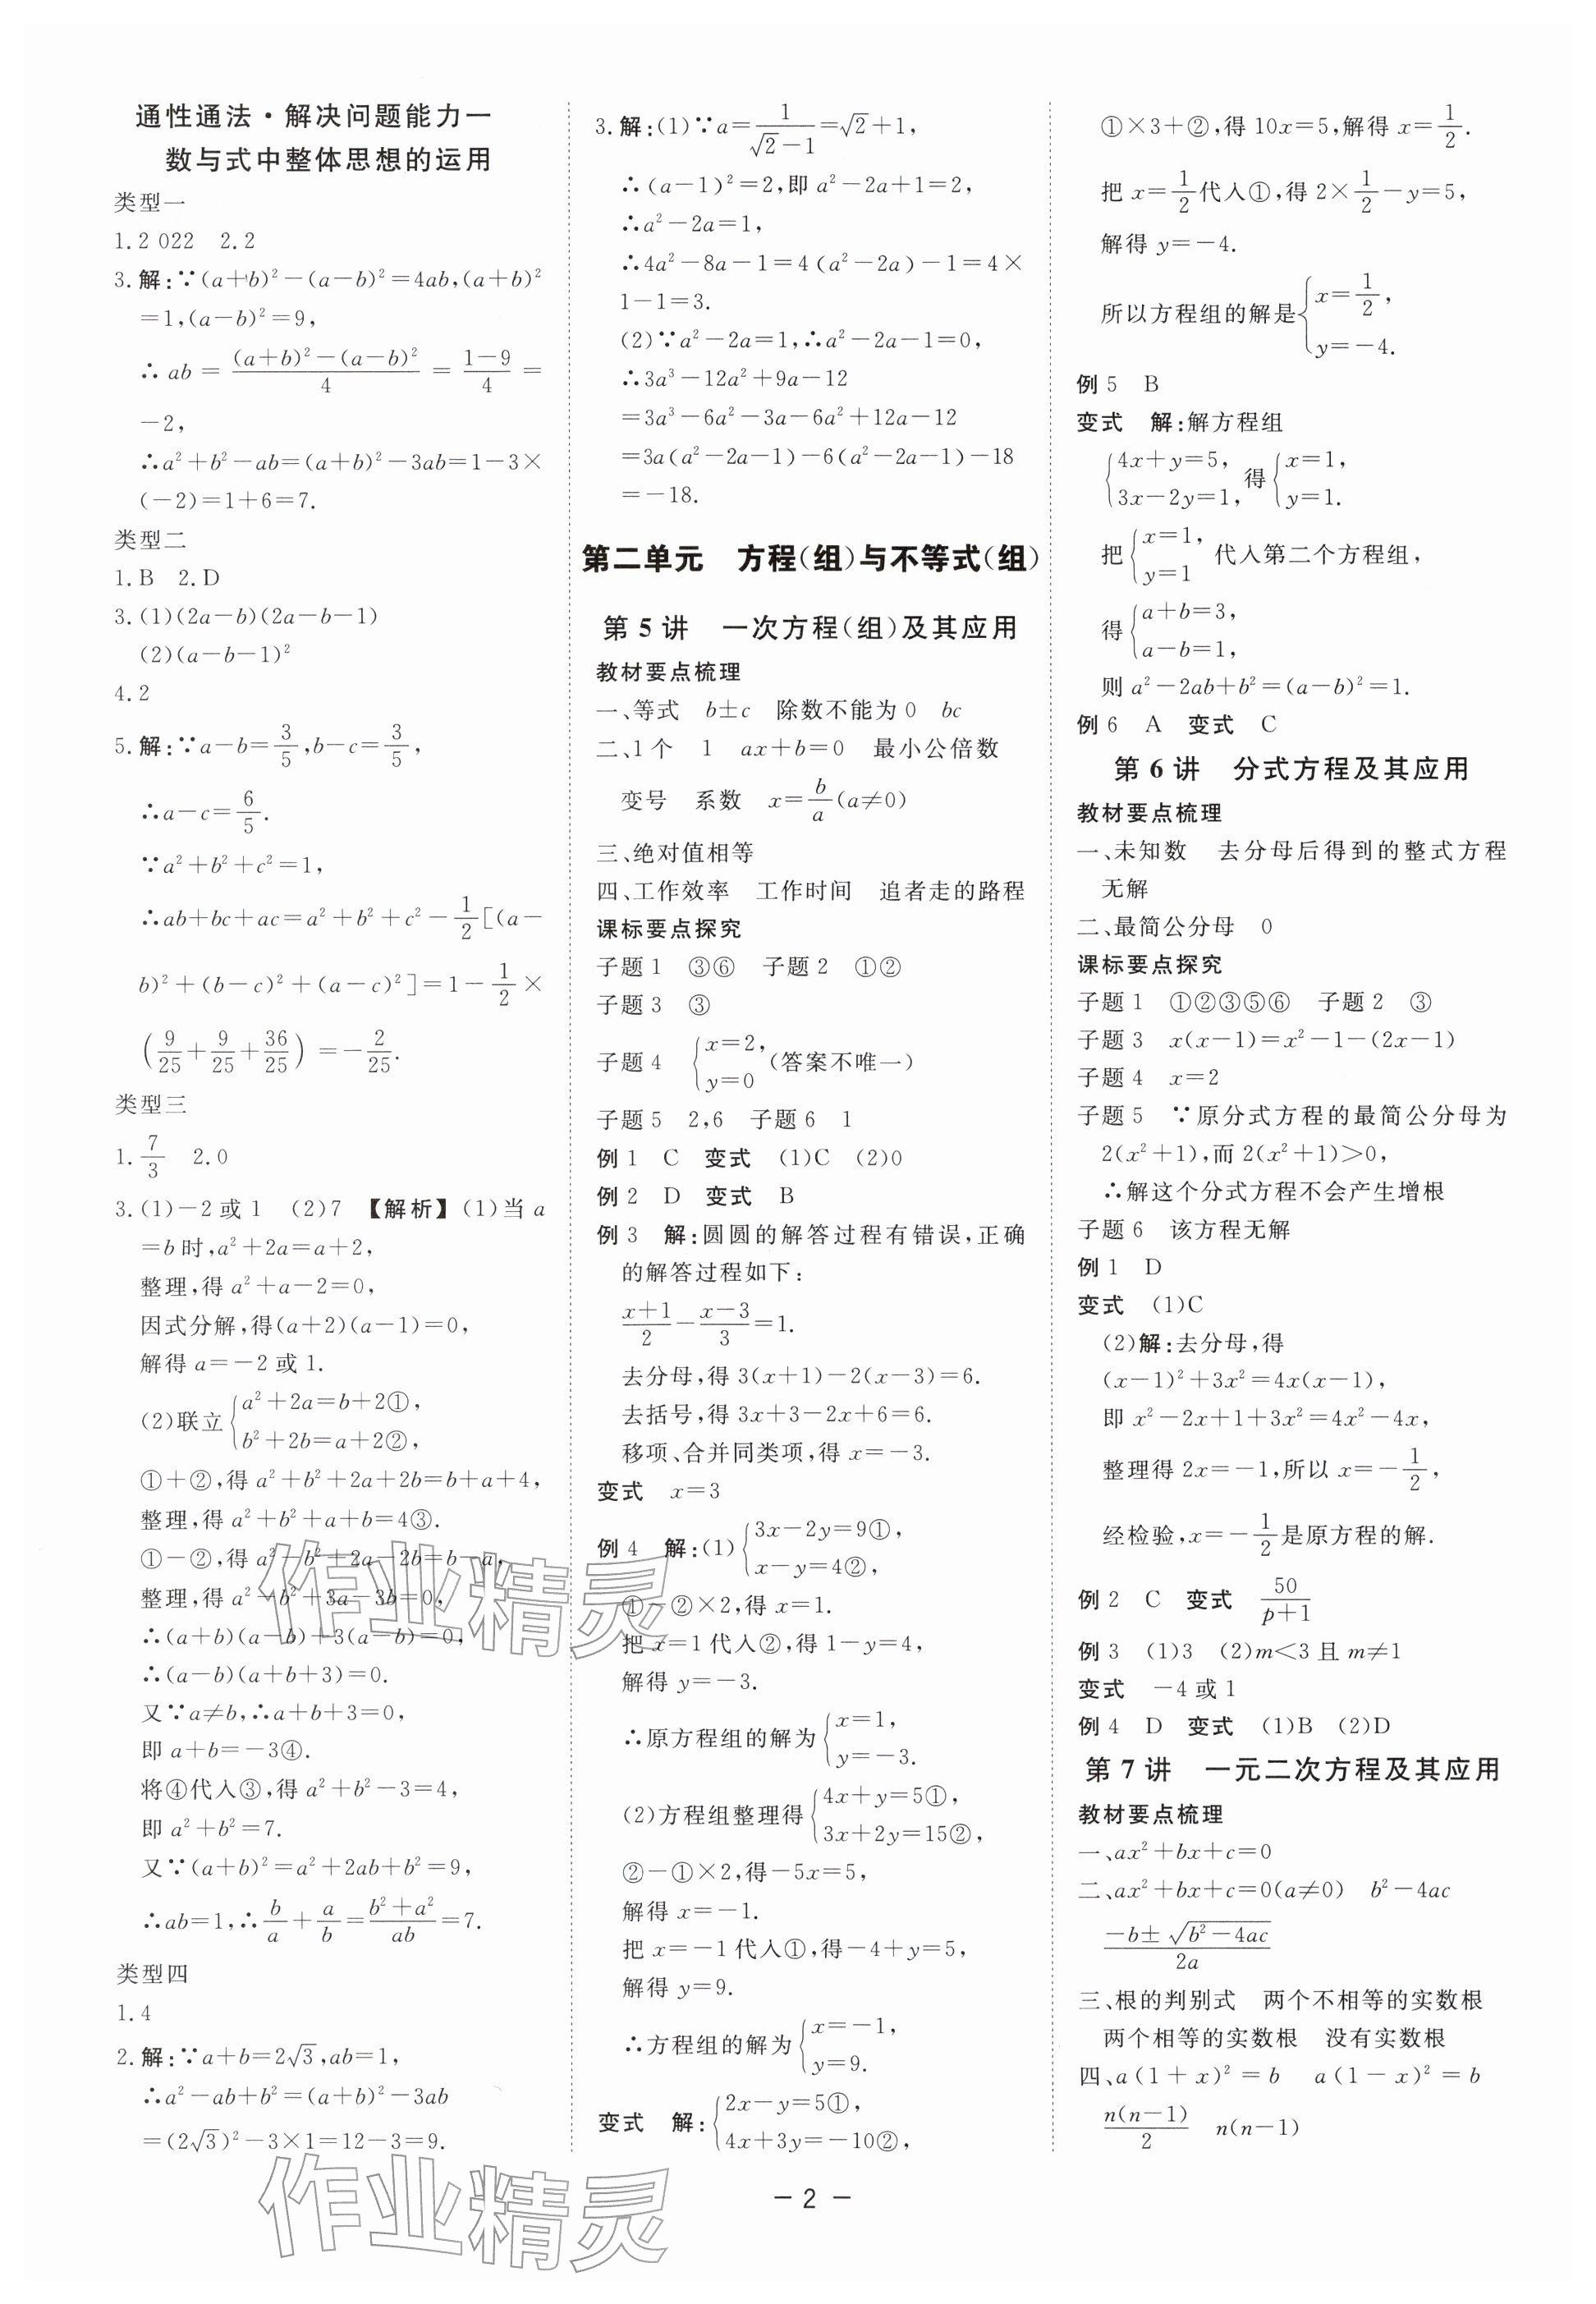 通性通法·解决问题能力一
数与式中整体思想的运用
类型一
1.2 022　2.2
3.解:∵(a+b)²-(a-b)²=4ab,(a+b)²
=1,(a-b)²=9,
∴ab=\frac{(a+b)²-(a-b)²}{4}=\frac{1-9}{4}=
-2,
∴a²+b²-ab=(a+b)²-3ab=1-3×
(-2)=1+6=7.
类型二
1.B　2.D
3.(1)(2a-b)(2a-b-1)
(2)(a-b-1)²
4.2
5.解:∵a-b=\frac{3}{5},b-c=\frac{3}{5},
∴a-c=\frac{6}{5}.
∵a²+b²+c²=1,
∴ab+bc+ac=a²+b²+c²-\frac{1}{2}[(a-
b)²+(b-c)²+(a-c)²]=1-\frac{1}{2}×
(\frac{9}{25}+\frac{9}{25}+\frac{36}{25})=-\frac{2}{25}.
类型三
1.\frac{7}{3}　2.0
3.(1)-2或1　(2)7　【解析】(1)当a
=b时,a²+2a=a+2,
整理,得a²+a-2=0,
因式分解,得(a+2)(a-1)=0,
解得a=-2或1.
(2)联立{a²+2a=b+2①,
b²+2b=a+2②,
①+②,得a²+b²+2a+2b=b+a+4,
整理,得a²+b²+a+b=4③.
①-②,得a²-b²+2a-2b=b-a,
整理,得a²-b²+3a-3b=0,
∴(a+b)(a-b)+3(a-b)=0,
∴(a-b)(a+b+3)=0.
又∵a≠b,∴a+b+3=0,
即a+b=-3④.
将④代入③,得a²+b²-3=4,
即a²+b²=7.
又∵(a+b)²=a²+2ab+b²=9,
∴ab=1,∴\frac{b}{a}+\frac{a}{b}=\frac{b²+a²}{ab}=7.
类型四
1.4
2.解:∵a+b=2√3,ab=1,
∴a²-ab+b²=(a+b)²-3ab
=(2√3)²-3×1=12-3=9.
3.解:(1)∵a=\frac{1}{√2-1}=√2+1,
∴(a-1)²=2,即a²-2a+1=2,
∴a²-2a=1,
∴4a²-8a-1=4(a²-2a)-1=4×
1-1=3.
(2)∵a²-2a=1,∴a²-2a-1=0,
∴3a³-12a²+9a-12
=3a³-6a²-3a-6a²+12a-12
=3a(a²-2a-1)-6(a²-2a-1)-18
=-18.
第二单元　方程(组)与不等式(组)
第5讲　一次方程(组)及其应用
教材要点梳理
一、等式　b±c　除数不能为0　bc
二、1个　1　ax+b=0　最小公倍数
变号　系数　x=\frac{b}{a}(a≠0)
三、绝对值相等
四、工作效率　工作时间　追者走的路程
课标要点探究
子题1　③⑥　子题2　①②
子题3　③
子题4　{x=2,
y=0
(答案不唯一)
子题5　2,6　子题6　1
例1　C　变式　(1)C　(2)0
例2　D　变式　B
例3　解:圆圆的解答过程有错误,正确
的解答过程如下:
\frac{x+1}{2}-\frac{x-3}{3}=1.
去分母,得3(x+1)-2(x-3)=6.
去括号,得3x+3-2x+6=6.
移项、合并同类项,得x=-3.
变式　x=3
例4　解:(1){3x-2y=9①,
x-y=4②,
①-②×2,得x=1.
把x=1代入②,得1-y=4,
解得y=-3.
∴原方程组的解为{x=1,
y=-3.
(2)方程组整理得{4x+y=5①,
3x+2y=15②,
②-①×2,得-5x=5,
解得x=-1.
把x=-1代入①,得-4+y=5,
解得y=9.
∴方程组的解为{x=-1,
y=9.
变式　解:{2x-y=5①,
4x+3y=-10②,
①×3+②,得10x=5,解得x=\frac{1}{2}.
把x=\frac{1}{2}代入①,得2×\frac{1}{2}-y=5,
解得y=-4.
所以方程组的解是{x=\frac{1}{2},
y=-4.
例5　B
变式　解:解方程组
{4x+y=5,
3x-2y=1,
得{x=1,
y=1.
把{x=1,
y=1
代入第二个方程组,
得{a+b=3,
a-b=1,
则a²-2ab+b²=(a-b)²=1.
例6　A　变式　C
第6讲　分式方程及其应用
教材要点梳理
一、未知数　去分母后得到的整式方程
无解
二、最简公分母　0
课标要点探究
子题1　①②③⑤⑥　子题2　③
子题3　x(x-1)=x²-1-(2x-1)
子题4　x=2
子题5　∵原分式方程的最简公分母为
2(x²+1),而2(x²+1)>0,
∴解这个分式方程不会产生增根
子题6　该方程无解
例1　D
变式　(1)C
(2)解:去分母,得
(x-1)²+3x²=4x(x-1),
即x²-2x+1+3x²=4x²-4x,
整理得2x=-1,所以x=-\frac{1}{2},
经检验,x=-\frac{1}{2}是原方程的解.
例2　C　变式　\frac{50}{p+1}
例3　(1)3　(2)m<3且m≠1
变式　-4或1
例4　D　变式　(1)B　(2)D
第7讲　一元二次方程及其应用
教材要点梳理
一、ax²+bx+c=0
二、ax²+bx+c=0(a≠0)　b²-4ac
\frac{-b±√(b²-4ac)}{2a}
三、根的判别式　两个不相等的实数根
两个相等的实数根　没有实数根
四、a(1+x)²=b　a(1-x)²=b
\frac{n(n-1)}{2}　n(n-1)
作业精灵
作业精灵
- 2 -